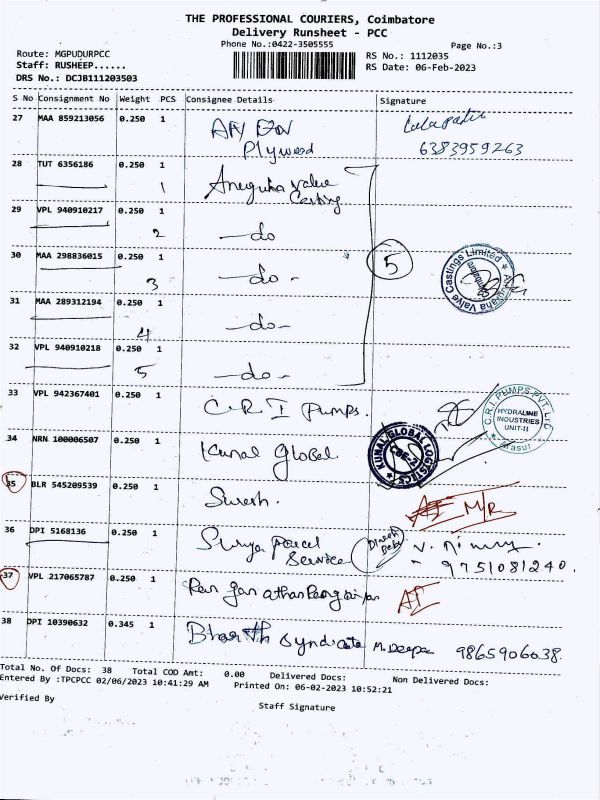 THE PROFESSIONAL COURIERS, Coimbatore
Delivery Runsheet - PCC
Phone No.:0422-3505555
Page No.:3
Route: MGPUDURPCC
RS No.: 1112035
Staff: RUSHEEP......
RS Date: 06-Feb-2023
DRS No.: DCJB111203503
S No Consignment No Weight PCS Consignee Details Signature
27 MAA 859213056 0.250 1
Plywood
6383959263
28 TUT 6356186 0.250 1 Valve
1 Casting
29 VPL 940910217 0.250 1
2 -do
30 MAA 298836015 0.250 1 5
3 -do-
31 MAA 289312194 0.250 1
4 -do-
32 VPL 940910218 0.250 1
5 -do-
Valve Castings Limited
Coimbatore
33 VPL 942367401 0.250 1 C.R.I Pumps.
C.R.I. PUMPS PVT LTD
HYDRALINE
INDUSTRIES
UNIT-II
Arasur
34 NRN 100006507 0.250 1 Kunal Global
KUNAL GLOBAL LOGISTICS
CBE-2
35 BLR 545209539 0.250 1 Suresh.
M/R
36 DPI 5168136 0.250 1 Surya Parcel
Service
9751081240.
37 VPL 217065787 0.250 1
38 DPI 10390632 0.345 1 Bharath Syndicate M. Deepa 9865906038.
Total No. Of Docs: 38 Total COD Amt: 0.00 Delivered Docs: Non Delivered Docs:
Entered By :TPCPCC 02/06/2023 10:41:29 AM Printed On: 06-02-2023 10:52:21
Verified By
Staff Signature